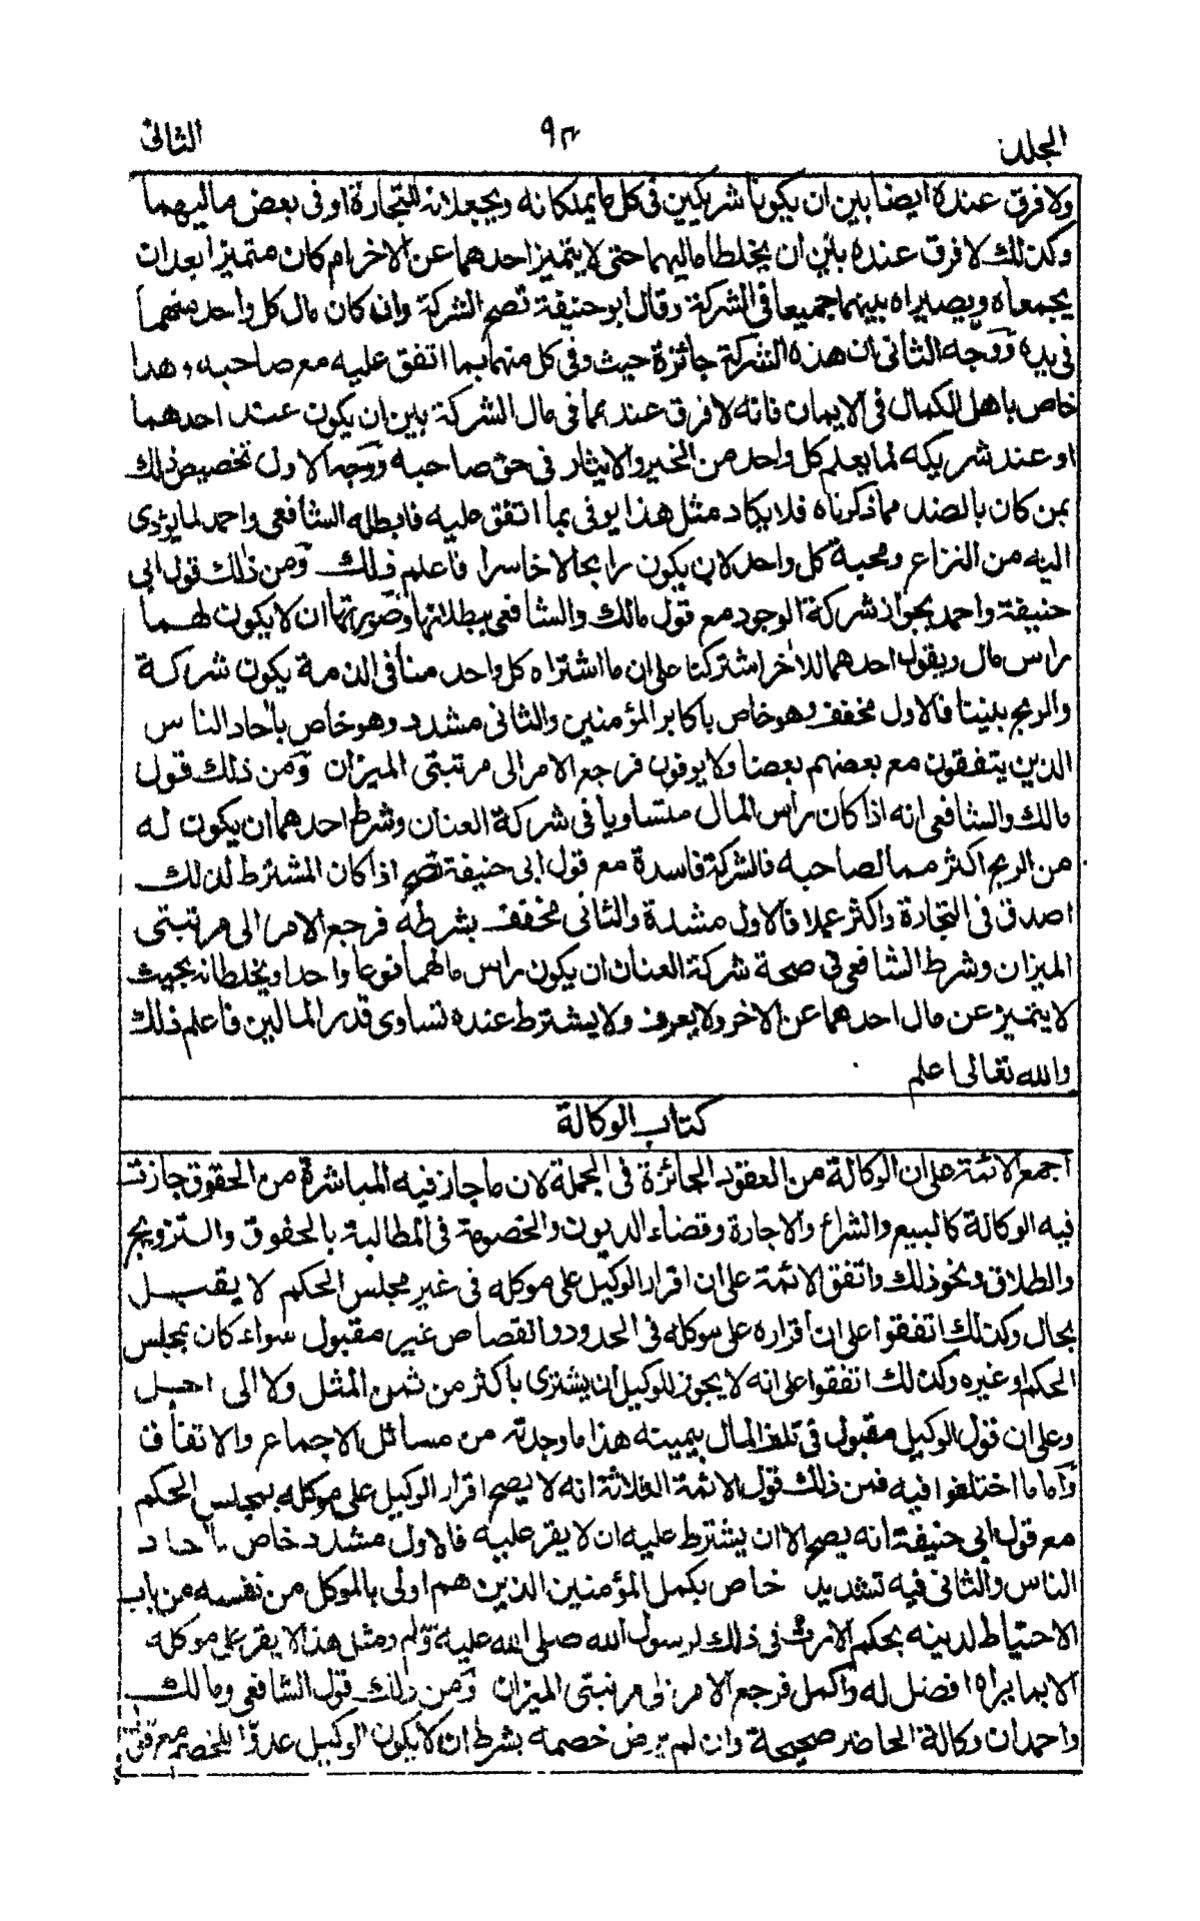 المجلد ٩٣ الثانى
ولا فرق عنده ايضا بين ان يكونا شريكين فى كل ما يملكانه ويجعلانه للتجارة او فى بعض ماليهما
وكذلك لا فرق عنده بين ان يخلطا ماليهما حتى لا يتميز احدهما عن الاخر ام كان متميزا بعد ان
يجمعاه ويصيراه بينهما جميعا فى الشركة وقال ابو حنيفة تصح الشركة وان كان مال كل واحد منهما
فى يده ووجه الثانى ان هذه الشركة جائزة حيث وفى كل منهما بما اتفق عليه مع صاحبه وهذا
خاص باهل الكمال فى الايمان فانه لا فرق عندهما فى مال الشركة بين ان يكون عند احدهما
او عند شريكه لما يعلم كل واحد من الخير والايثار فى حق صاحبه ووجه الاول تخصيص ذلك
بمن كان بالضد مما ذكرناه فلا يكاد مثل هذا يوفى بما اتفق عليه فابطله الشافعى واحمد لما يؤدى
اليه من النزاع ومحبة كل واحد لان يكون رابحا لا خاسرا فاعلم ذلك ومن ذلك قول ابى
حنيفة واحمد بجواز شركة الوجوه مع قول مالك والشافعى ببطلانها وصورتها ان لا يكون لهما
راس مال ويقول احدهما للاخر اشتركنا على ان ما اشتراه كل واحد منا فى الذمة يكون شركة
والربح بيننا فالاول مخفف وهو خاص باكابر المؤمنين والثانى مشدد وهو خاص باحاد الناس
الذين يتفقون مع بعضهم بعضا ولا يوفون فرجع الامر الى مرتبتى الميزان ومن ذلك قول
مالك والشافعى انه اذا كان رأس المال متساويا فى شركة العنان وشرط احدهما ان يكون له
من الربح اكثر مما لصاحبه فالشركة فاسدة مع قول ابى حنيفة تصح اذا كان المشترط لذلك
اصدق فى التجارة واكثر عملا فالاول مشدد والثانى مخفف بشرطه فرجع الامر الى مرتبتى
الميزان وشرط الشافعى فى صحة شركة العنان ان يكون راس مالهما نوعا واحدا ويخلطانه بحيث
لا يتميز عن مال احدهما عن الاخر ولا يعرف ولا يشترط عنده تساوى قدر المالين فاعلم ذلك
والله تعالى اعلم
كتاب الوكالة
اجمع الائمة على ان الوكالة من العقود الجائزة فى الجملة لان ما جاز فيه المباشرة من الحقوق جازت
فيه الوكالة كالبيع والشراء والاجارة وقضاء الديون والخصومة فى المطالبة بالحقوق والتزويج
والطلاق ونحو ذلك واتفق الائمة على ان اقرار الوكيل على موكله فى غير مجلس الحكم لا يقبل
بحال وكذلك اتفقوا على ان اقراره على موكله فى الحدود والقصاص غير مقبول سواء كان بمجلس
الحكم او غيره وكذلك اتفقوا على انه لا يجوز للوكيل ان يشترى باكثر من ثمن المثل ولا الى اجل
وعلى ان قول الوكيل مقبول فى تلف المال بيمينه هذا ما وجدته من مسائل الاجماع والاتفاق
واما ما اختلفوا فيه فمن ذلك قول الائمة الثلاثة انه لا يصح اقرار الوكيل على موكله بمجلس الحكم
مع قول ابى حنيفة انه يصح الا ان يشترط عليه ان لا يقر عليه فالاول مشدد خاص باحاد
الناس والثانى فيه تشديد خاص بكمل المؤمنين الذين هم اولى بالموكل من نفسه من باب
الاحتياط لدينه بحكم الارث فى ذلك لرسول الله صلى الله عليه وسلم ومثل هذا لا يقر على موكله
الا بما يراه افضل له واكمل فرجع الامر الى مرتبتى الميزان ومن ذلك قول الشافعى ومالك
واحمد ان وكالة الحاضر صحيحة وان لم يرض خصمه بشرط ان لا يكون الوكيل عدوا للخصم مع قول